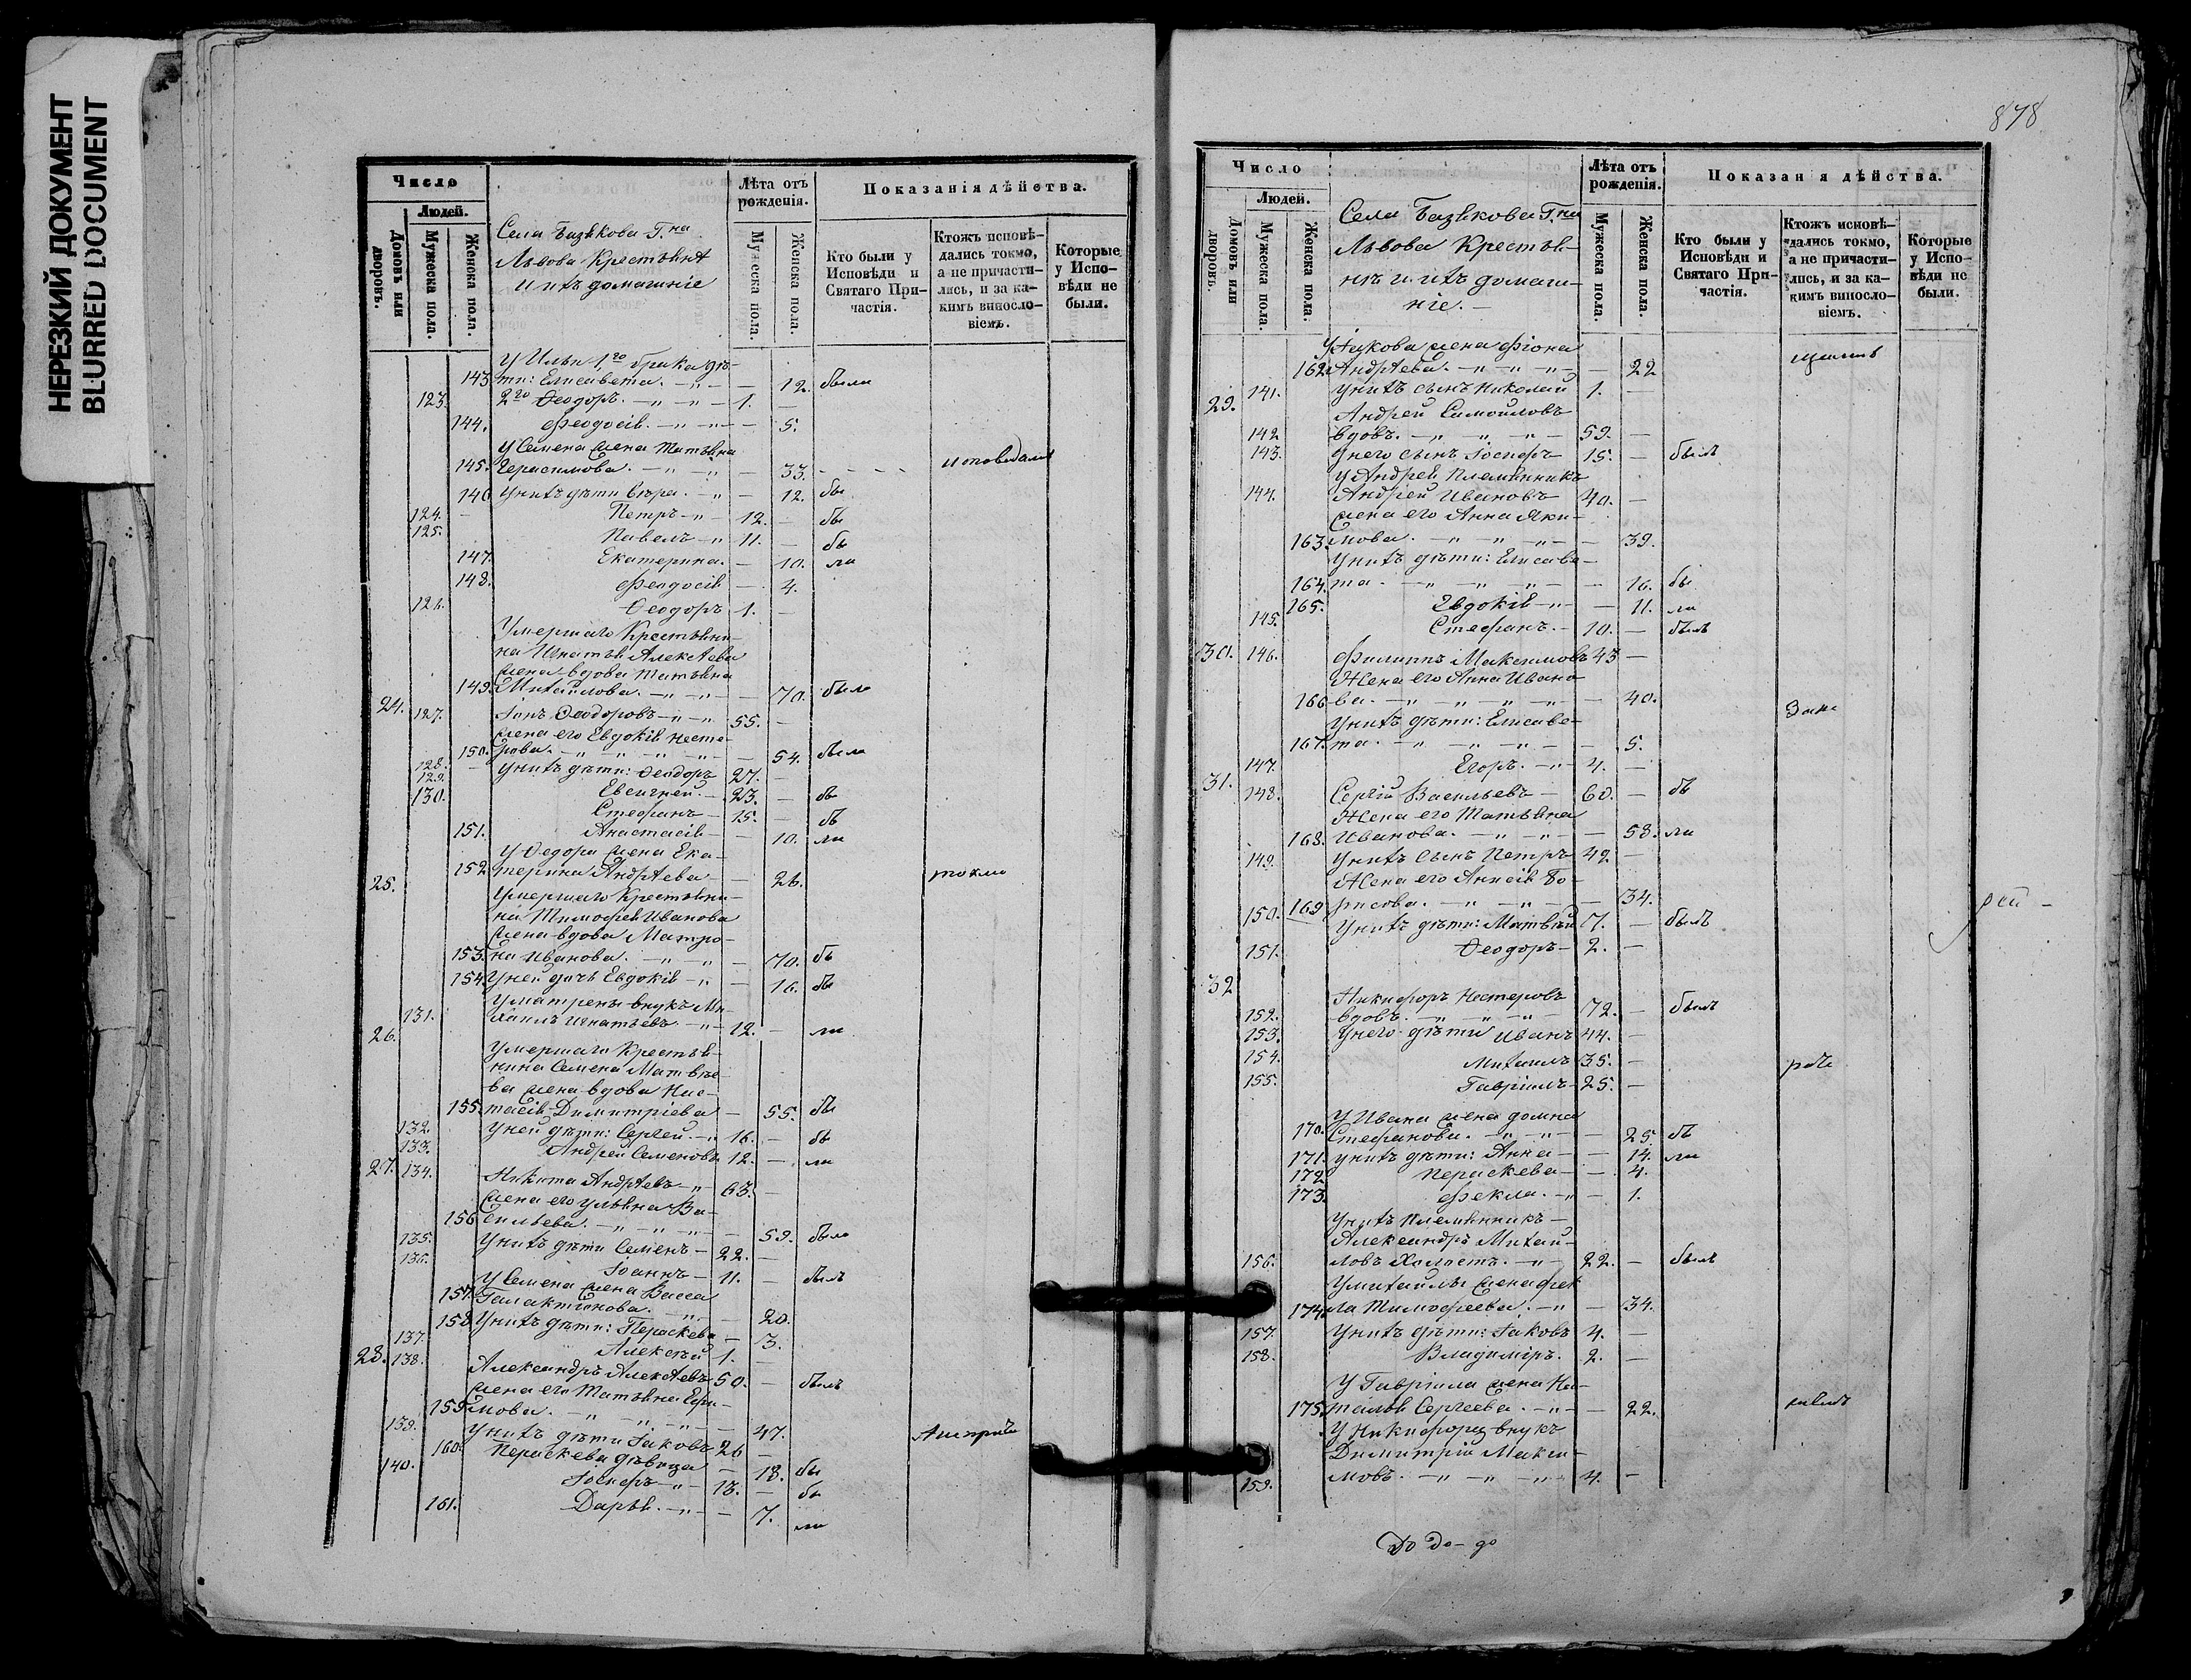 НЕРЕЗКИЙ ДОКУМЕНТ
BLURRED DOCUMENT
Число
Лѣта отъ рожденія.
Показанія дѣйства.
Людей.
Домовъ или дворовъ.
Мужеска пола.
Женска пола.
Села Базѣкова Г.на
Львова Крестьяне
и ихъ домашніе
Мужеска пола.
Женска пола.
Кто были у Исповѣди и Святаго При-частія.
Ктожъ исповѣ-дались токмо, а не причасти-лись, и за ка-кимъ винослo-віемъ.
Которые у Испо-вѣди не были.
У Ильи 1го брака дѣ-
143 ти: Елисавета. — 12. была
123. 2го Ѳеодоръ. — 1. —
144. Феодосія. — 5.
У Семена жена Татьяна
145. Герасимова. — 33. исповѣдали
146 У нихъ дѣти Вѣра. — 12. бы
124. Петръ — 12. — бы
125. Павелъ — 11. — бы
147. Екатерина. — 10. ли
148. Феодосія — 4.
126. Ѳеодоръ 1. —
Умершаго Крестьяни-
на Игнатья Алексѣева
жена вдова Татьяна
149. Михайлова. — 70. была
24. 127. Іонъ Ѳеодоровъ — 55. —
жена его Евдокія Несте-
150. рова. — 54. была
128. У нихъ дѣти: Ѳеодоръ 27. —
129. Евсигней. — 23. — бы
130. Стефанъ — 15. — бы
151. Анастасія — 10. ли
У Ѳедора жена Ека-
152 терина Андрѣева — 26. токмо
25. Умершаго Крестьяни-
на Тимофея Иванова
жена вдова Матро-
153. на Иванова. — 70. бы
154. У ней дочь Евдокія — 16. бы
У Матрены внукъ Ми-
131. хаилъ Игнатьевъ — 12. — ли
26. Умершаго Крестья-
нина Семена Матвѣе-
ва жена вдова Нас-
155. тасія Димитріева — 55. бы
132. У ней дѣти: Сергей. — 16. — бы
133. Андрей Семеновъ 12. — ли
27. 134. Никита Андрѣевъ — 63. —
жена его Ульяна Ва-
156 сильева. — 59. была
135. У нихъ дѣти Семенъ — 22. —
136. Іоаннъ — 11. — былъ
У Семена жена Васса
157. Галактионова. — 20.
158 У нихъ дѣти: Параскева — 3.
137. Алексѣй 1. —
28. 138. Александръ Алексѣевъ 50. — былъ
жена его Татьяна Ефи-
159 мова. — 47.
139. У нихъ дѣти Іаковъ 26 —
160. Параскева дѣвица — 18. бы
140. Іосифъ — 13. — бы
161. Дарья. — 7. ли
878
Число
Лѣта отъ рожденія.
Показан я дѣйства.
Людей.
Домовъ или дворовъ.
Мужеска пола.
Женска пола.
Села Базѣкова Г.на
Львова Крестья-
не и ихъ домаш-
ніе. —
Мужеска пола.
Женска пола.
Кто были у Исповѣди и Святаго При-частія.
Ктожъ исповѣ-дались токмо, а не причасти-лись, и за ка-кимъ винослo-віемъ.
Которые у Испо-вѣди не были.
У Іакова жена Фіона
162. Андрѣева. — 22
141. У нихъ сынъ Николай 1. —
29. Андрей Самойловъ
142 вдовъ. — 59. —
143. У него сынъ Іосифъ 15. — былъ
У Андрея племянникъ
144. Андрей Ивановъ 40. —
жена его Анна Яки-
163. мова. — 39.
У нихъ дѣти: Елисаве-
164. та. — 16. бы
165. Евдокія — 11. ли
145. Стефанъ. — 10. — былъ
30. 146. Филиппъ Максимовъ 43 —
Жена его Анна Ивано-
166 ва. — 40.
У нихъ дѣти: Елисаве-
167. та. — 5.
147. Егоръ. — 4. —
31. 148. Сергій Васильевъ — 60. — бы
Жена его Татьяна
168. Иванова. — 58. ли
149. У нихъ сынъ Петръ 42 —
Жена его Анисія Бо-
169 рисова. — 34.
150. У нихъ дѣти: Матвѣй 7. — былъ
151. Ѳеодоръ — 2. —
32 Никифоръ Нестеровъ
152. вдовъ. — 72. — былъ
153. У него дѣти Иванъ 44. —
154. Михаилъ 35. —
155. Гавріилъ — 25. —
У Ивана жена Домна
170. Стефанова. — 25. бы
171. У нихъ дѣти: Анна — 14. ли
172 Параскева — 4.
173. Фекла. — 1.
У нихъ племянникъ —
Александръ Михай-
156. ловъ Холостъ. — 22. — былъ
У Михайлы жена Фек
174. ла Тимофеева. — 34.
157. У нихъ дѣти: Іаковъ 4. —
158. Владиміръ. 2. —
У Гавріила жена На-
175. талья Сергеева. — 22.
У Никифора внукъ
Димитрій Макси-
159. мовъ. — 4. —